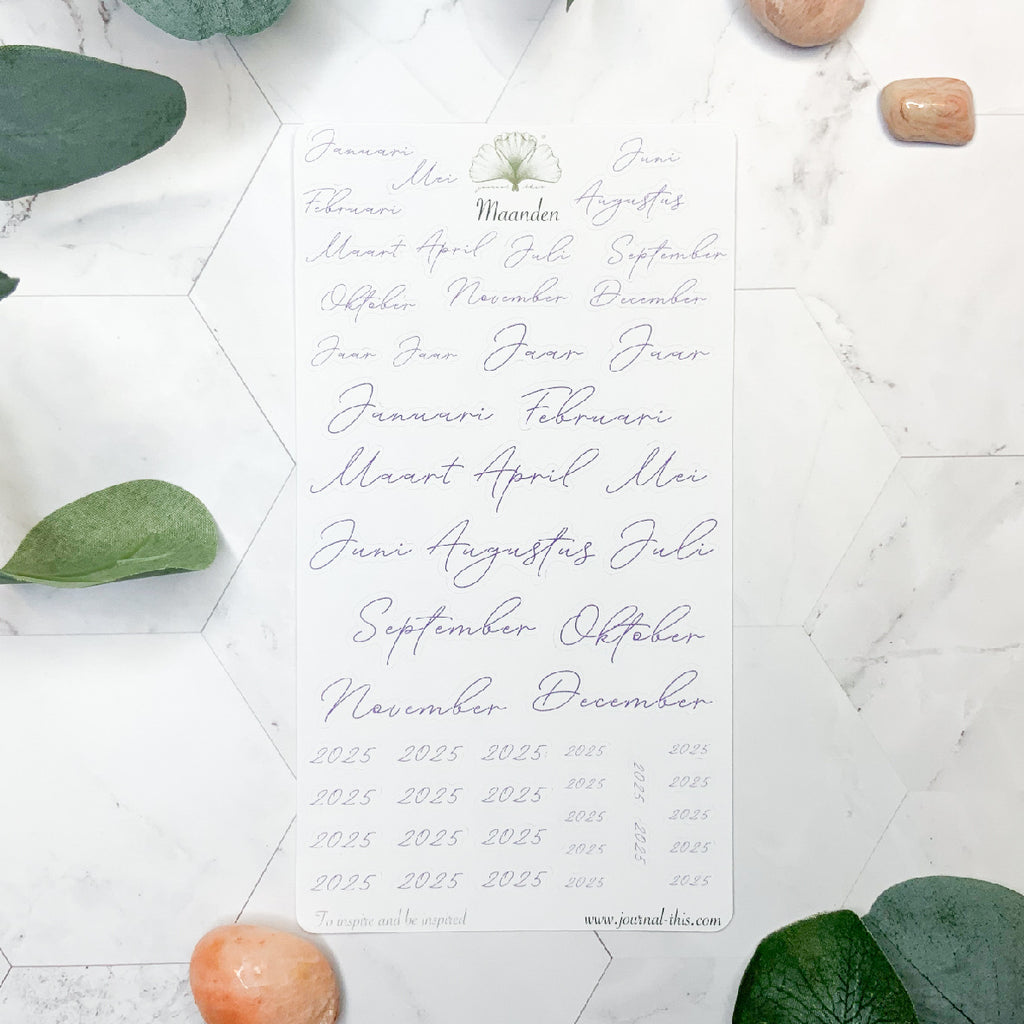 Januari Mei Juni
journal this
Februari Maanden Augustus
Maart April Juli September
Oktober November December
Jaar Jaar Jaar Jaar
Januari Februari
Maart April Mei
Juni Augustus Juli
September Oktober
November December
2025 2025 2025 2025 2025
2025 2025 2025 2025 2025 2025
2025 2025
2025 2025 2025 2025 2025 2025
2025 2025 2025 2025 2025
To inspire and be inspired www.journal-this.com